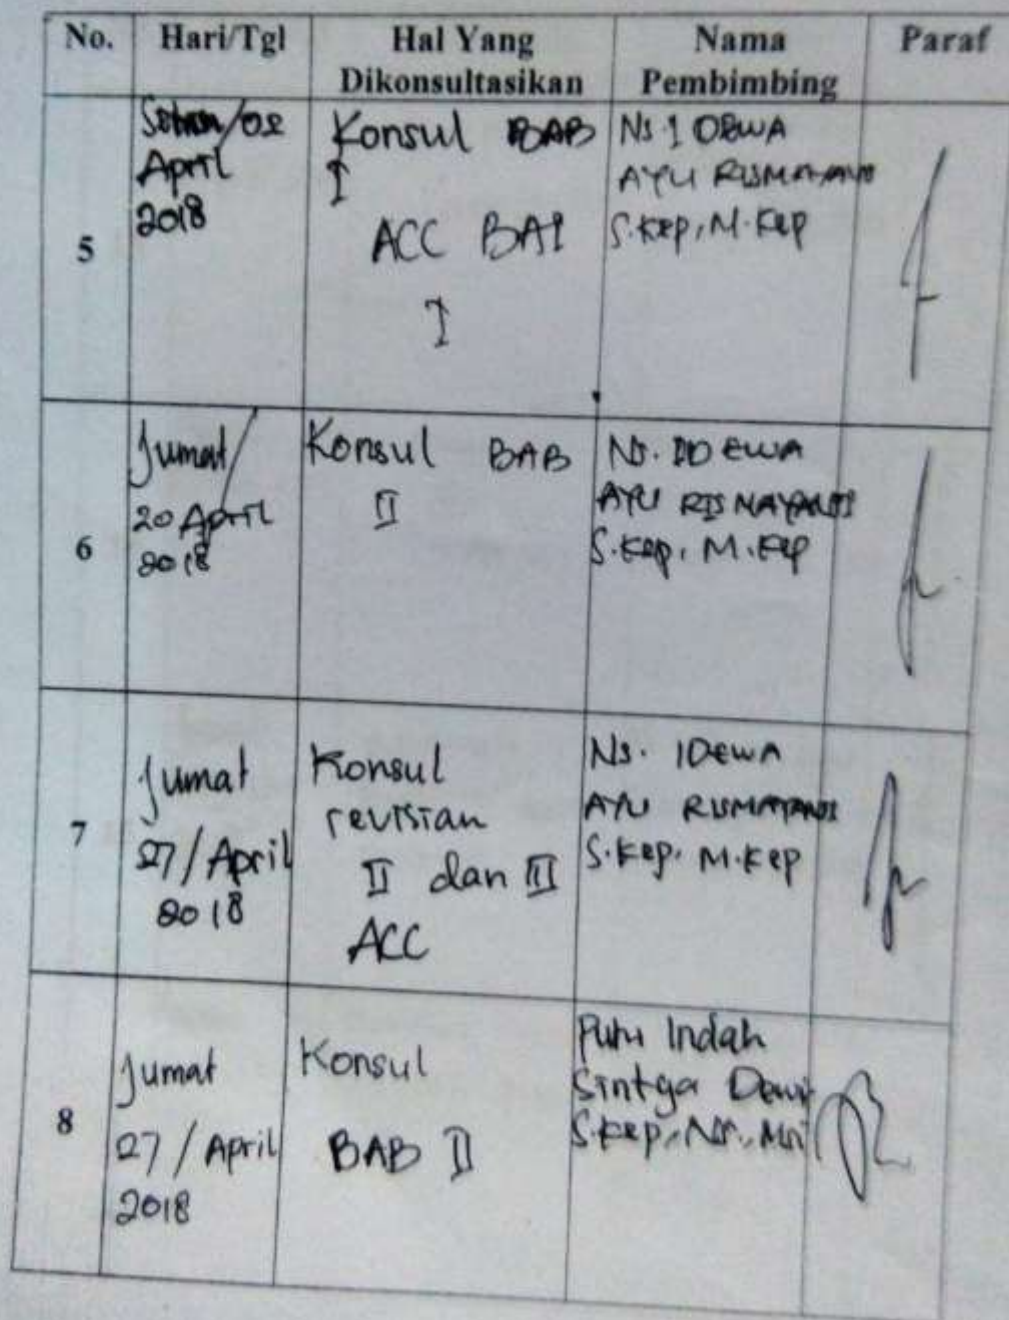 No. Hari/Tgl Hal Yang Dikonsultasikan Nama Pembimbing Paraf
5
/02
April
2018
Konsul BAB
I
ACC BAB
I
Ns. I DEWA
AYU RISMAYANTI
S.Kep, M.Kep
6
Jumat/
20 April
2018
Konsul BAB
II
Ns. I DEWA
AYU RISMAYANTI
S.Kep, M.Kep
7
Jumat
27/April
2018
Konsul
revisian
II dan III
ACC
Ns. IDEWA
AYU RISMAYANTI
S.Kep, M.Kep
8
Jumat
27/April
2018
Konsul
BAB II
Putu Indah
Sintya Dewi
S.Kep, Ns.,